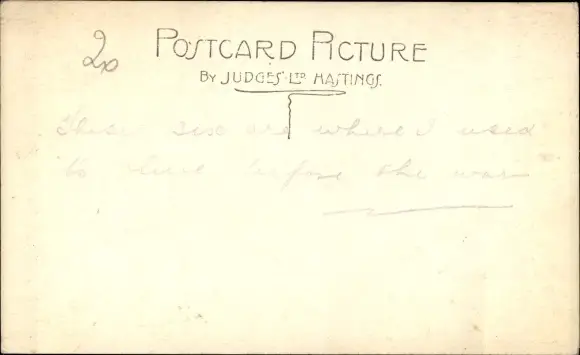 20
POSTCARD PICTURE
BY JUDGES' LTD HASTINGS.
These six are where I used
to live before the war